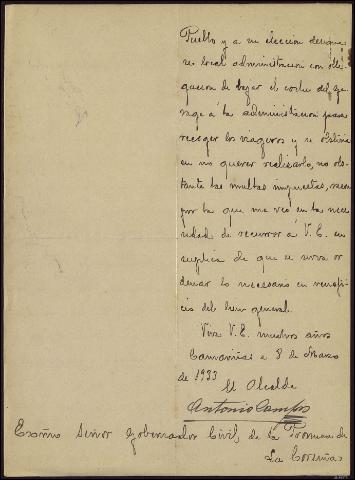 Pueblo y a su eleccion
local administracion con
de bajar el coche
á la administracion para
recoger los viageros y se
en no querer realizarlo, no obs
tante las multas impuestas,
por lo que me veo en la nece
sidad de recurrir á V. E. en
suplica de que se sirva or
denar lo necesario en benefi
cio del bien general.
Viva V. E. muchos años
Camariñas a 8 de Marzo
de 1933
El Alcalde
Antonio Campos
Excmo Señor Gobernador Civil de la Provincia de
La Coruña